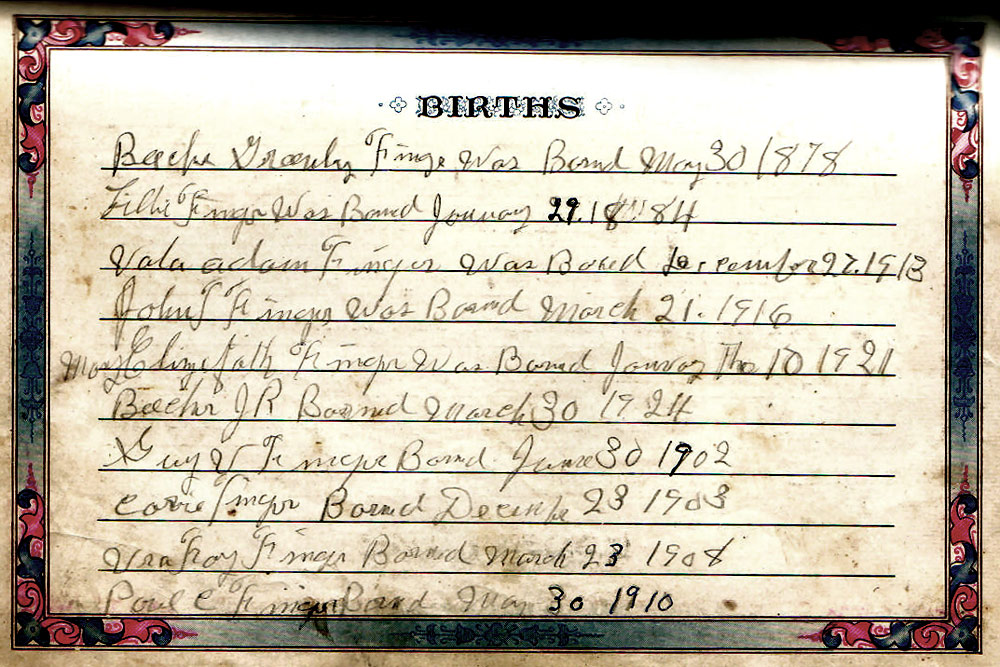 BIRTHS
Beeche Greeley Finge Was Bornd May 30 1878
Lillie Finger Was Bornd January 29. 1884
Vala adam Finger Was Boned December 27. 1913
John Finger Was Bornd March 21. 1916
Mary Elizefath Finger Was Bornd January The 10 1921
Beecher JR Bornd March 30 1924
Guy V Finger Bornd June 30 1902
Carrie Finger Bornd December 23 1903
Finger Bornd March 23 1908
Poul C Finger Bornd May 30 1910